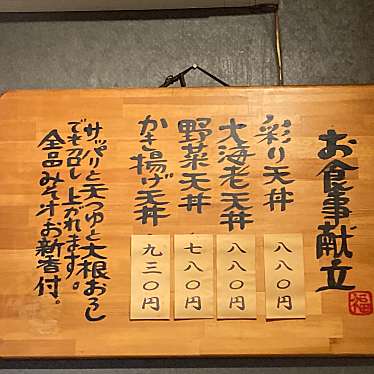 お食事献立
福
彩り天丼
八八〇円
大海老天丼
八八〇円
野菜天丼
七八〇円
かき揚げ天丼
九三〇円
サッパリと天つゆと大根おろし
でも召し上がれます。
全品みそ汁お新香付。